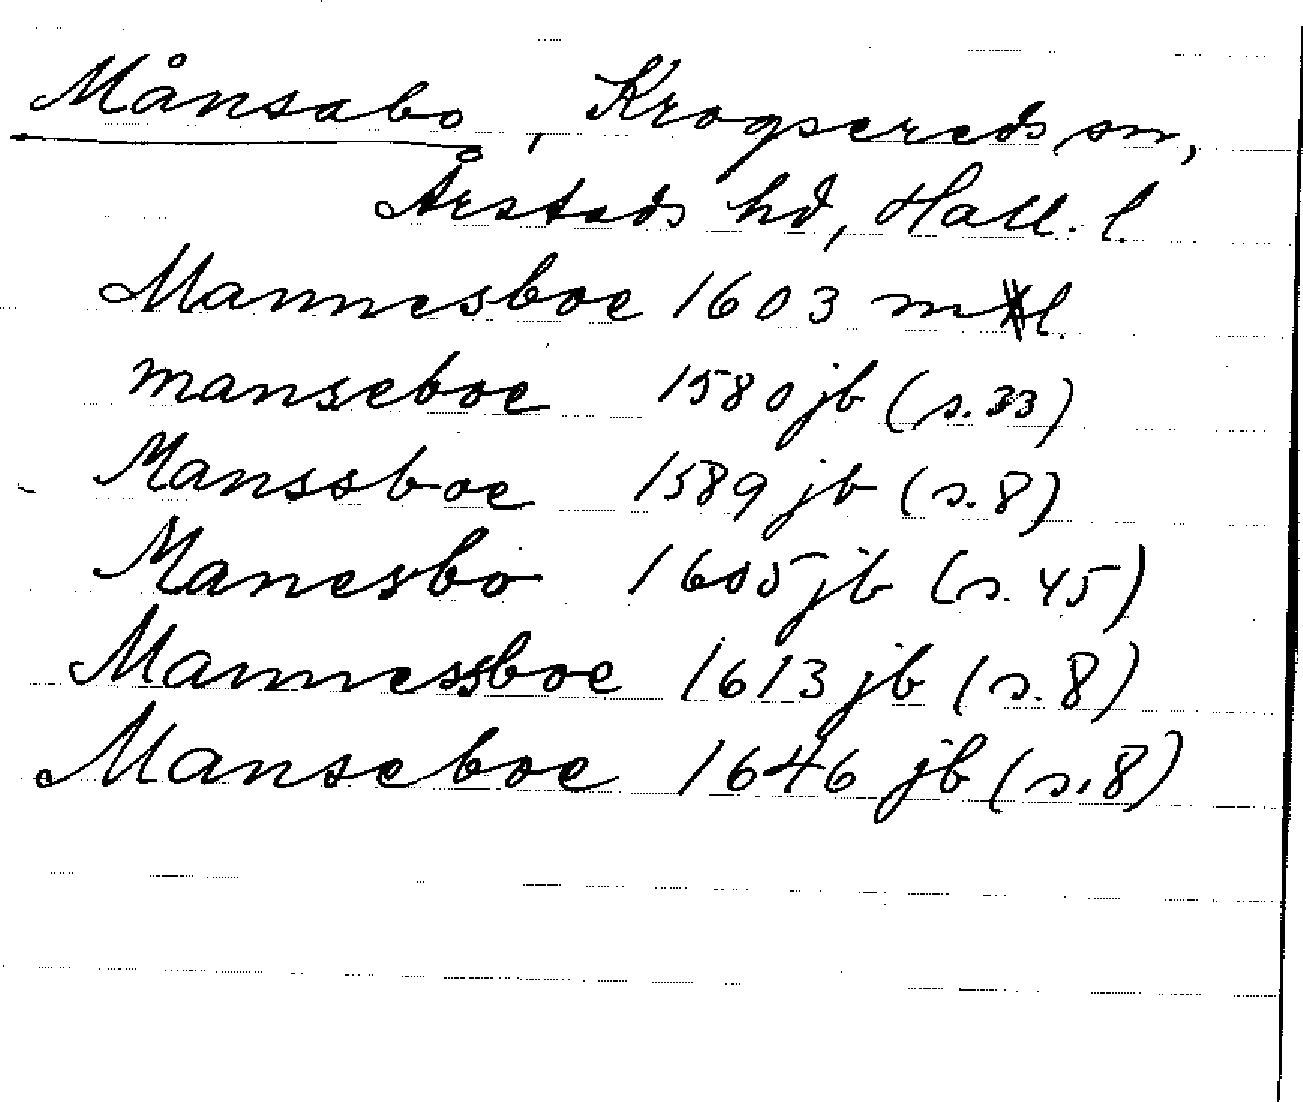 Månsabo, Krogsereds sn,
Årstads hd, Hall. l.
Mannesboe 1603 ml.
manseboe 1580 jb (s. 33)
Manssboe 1589 jb (s. 8)
Manesbo 1605 jb (s. 45)
Mannessboe 1613 jb (s. 8)
Manseboe 1646 jb (s. 8)